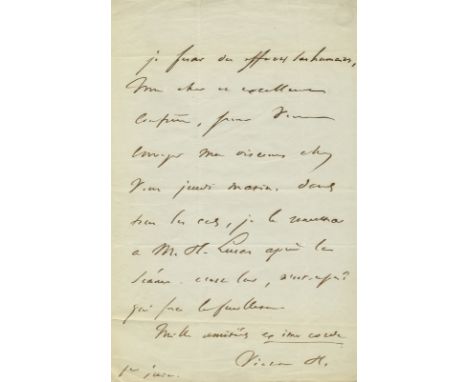 je ferai des efforts surhumains,
Mon cher et excellent
Confrère, pour Vous
envoyer mon discours chez
Vous jeudi matin. dans
tous les cas, je le remettrai
à M. H. Lucas après la
Séance. c'est lui, n'est-ce pas,
qui fait le feuilleton
Mille amitiés ex imo corde
Victor H.
1er juin.